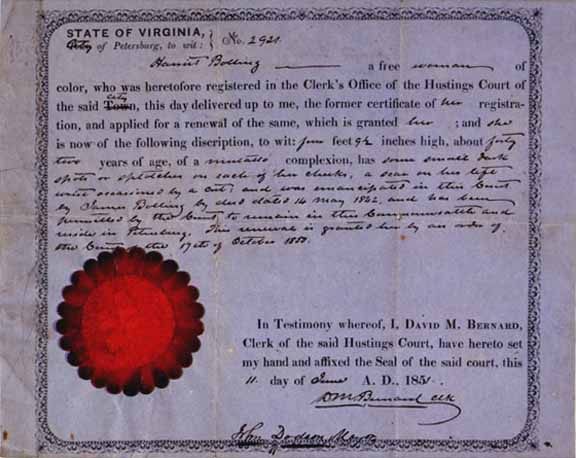 STATE OF VIRGINIA,
City of Petersburg, to wit: } No. 2921
Harriet Bolling a free woman of
color, who was heretofore registered in the Clerk's Office of the Hustings Court of
city
the said Town, this day delivered up to me, the former certificate of her registra-
tion, and applied for a renewal of the same, which is granted her ; and she
is now of the following discription, to wit: five feet 9½ inches high, about forty
two years of age, of a mulatto complexion, has some small dark
spots or splotches on each of her cheeks, a scar on her left
wrist occasioned by a cut; and was emancipated in this Court
by James Bolling by deed dated 14 May 1842, and has been
permitted by the Court to remain in this Commonwealth and
reside in Petersburg. This renewal is granted her by an order of
the Court of the 17th of October 1850.
In Testimony whereof, I, DAVID M. BERNARD,
Clerk of the said Hustings Court, have hereto set
my hand and affixed the Seal of the said court, this
11 day of June A. D., 1851.
DM Bernard clk
Dodson Mayor